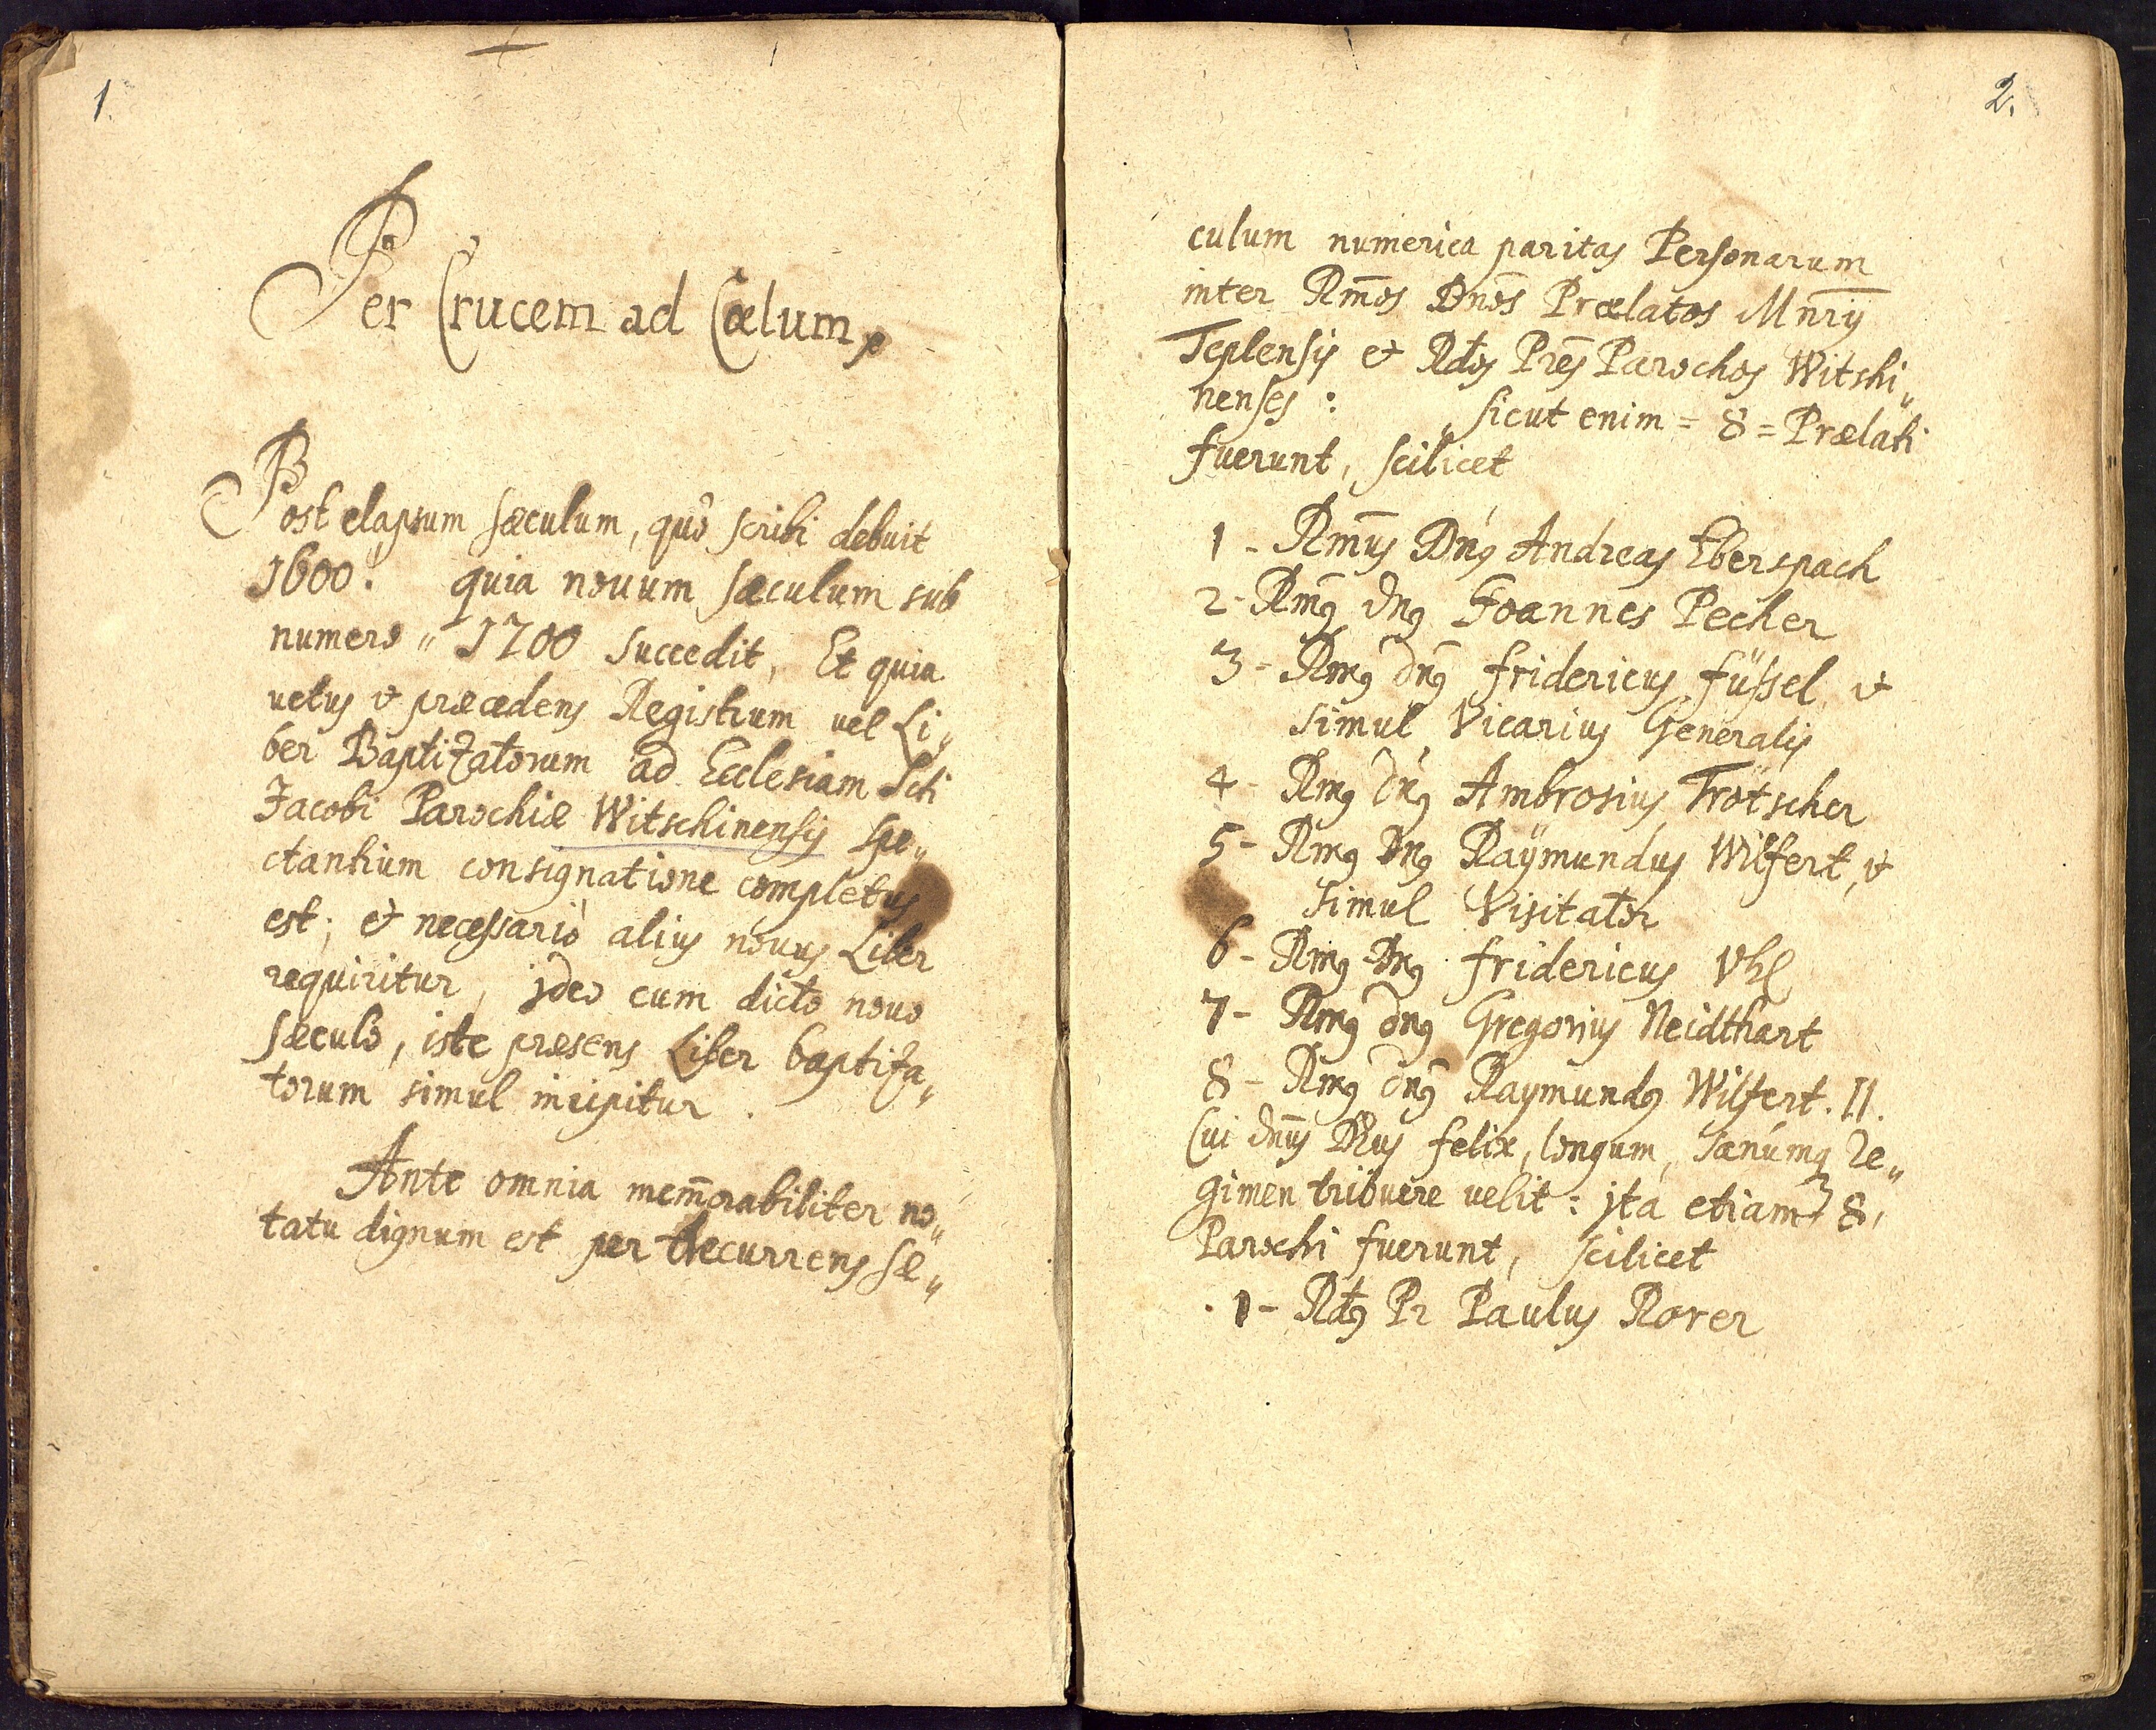 1.
Per Crucem ad Cœlum
Post elapsum sæculum, quò scribi debuit
1600. quia nouum sæculum sub
numero " 1700 succedit, Et quia
uetus et præcedens Registrum uel Li„
ber Baptizatorum ad Ecclesiam Scti
Jacobi Parochiæ Witschinensis spe„
ctantium consignatione completus
est; et necessariò alius nouus Liber
requiritur, jdeo cum dicto nouo
sæculo, iste præsens Liber baptiza„
torum simul incipitur.
Ante omnia mem̄orabiliter no„
tatu dignum est per decurrens sæ„
2.
culum numerica paritas Personarum
inter Rm̄os Dnōs Prælatos Mn̄rij
Teplensis et Rdos Prēs Parochos Witshi„
nenses: „sicut enim = 8 = Prælati
fuerunt, scilicet
1 - Rm̄us Dn9 Andreas Eberspach
2 - Rm9 dn9 Joannes Pecher
3 - Rm9 dn9 fridericus füssel et
simul Vicarius Generalis
4 - Rm9 dn9 Ambrosius Trötscher
5 - Rm9 Dn9 Raÿmundus Wilfert, et
simul Visitator
6 - Rm9 Dn9 fridericus Vhl
7 - Rm9 dn9 Gregorius Neidthart
8 - Rm9 dn9 Raymund9 Wilfert. II.
Cui dn̄us Deus felix, longum, sanúmq Re„
gimen tribuere uelit: jta etiam 8,
Parochi fuerunt, scilicet
1 - Rd9 Pr Paulus Rorer